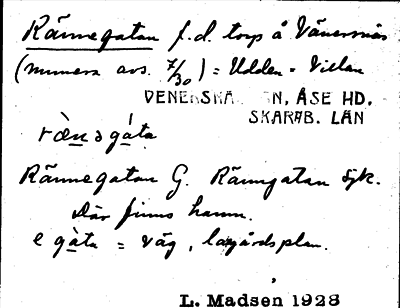 Rännegatan f.d. torp å Vänersnäs
(numera avs. 7/30) = Udden - Villan
VENERSNÄ N, ÅSE HD.
SKARAB. LÄN
ræ̀nəgáta
Rännegatan G. Ränngatan Sjk.
Där finns hamn.
e gàta = väg, lagårdsplan.
L. Madsen 1928